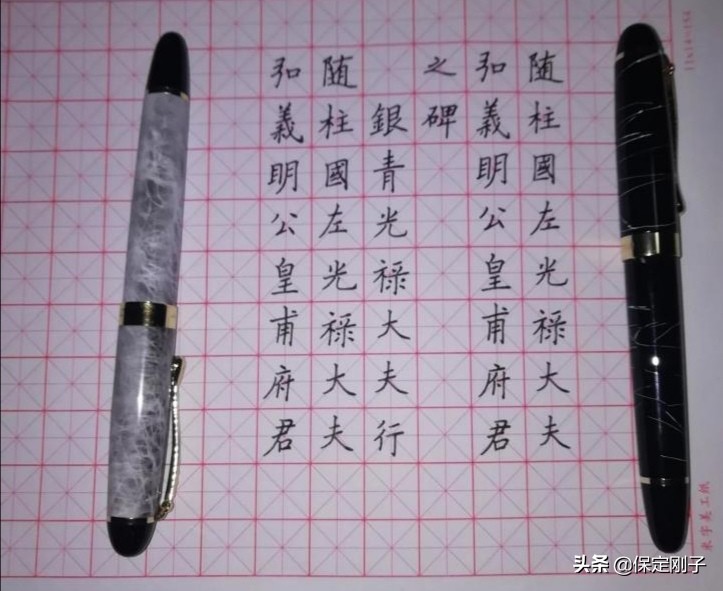 随柱國左光禄大夫
弘義明公皇甫府君
之碑
銀青光禄大夫行
随柱國左光禄大夫
弘義明公皇甫府君
11x14=154
头条 @保定刚子